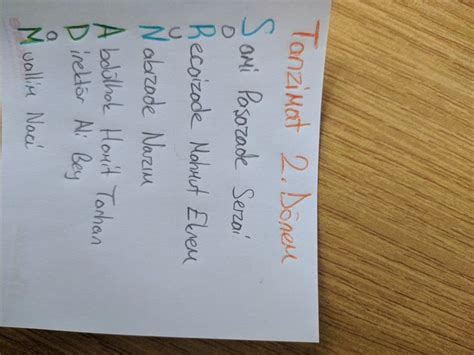 Tanzimat 2. Dönem
Sami Paşazade Sezai
O
Recaizade Mahmut Ekrem
U
Nabizade Nazım
Abdülhak Hamit Tarhan
Direktör Ali Bey
a
Muallim Naci